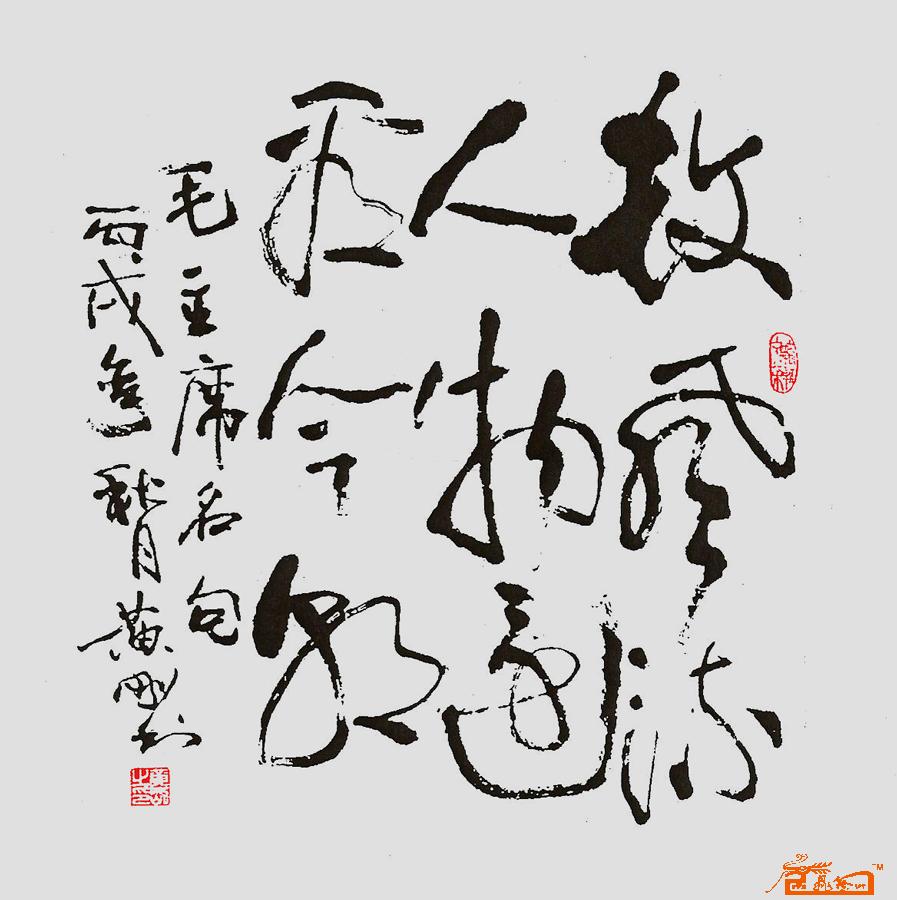 数风流
人物还
看今朝
毛主席名句
丙戌金秋月黄刚书